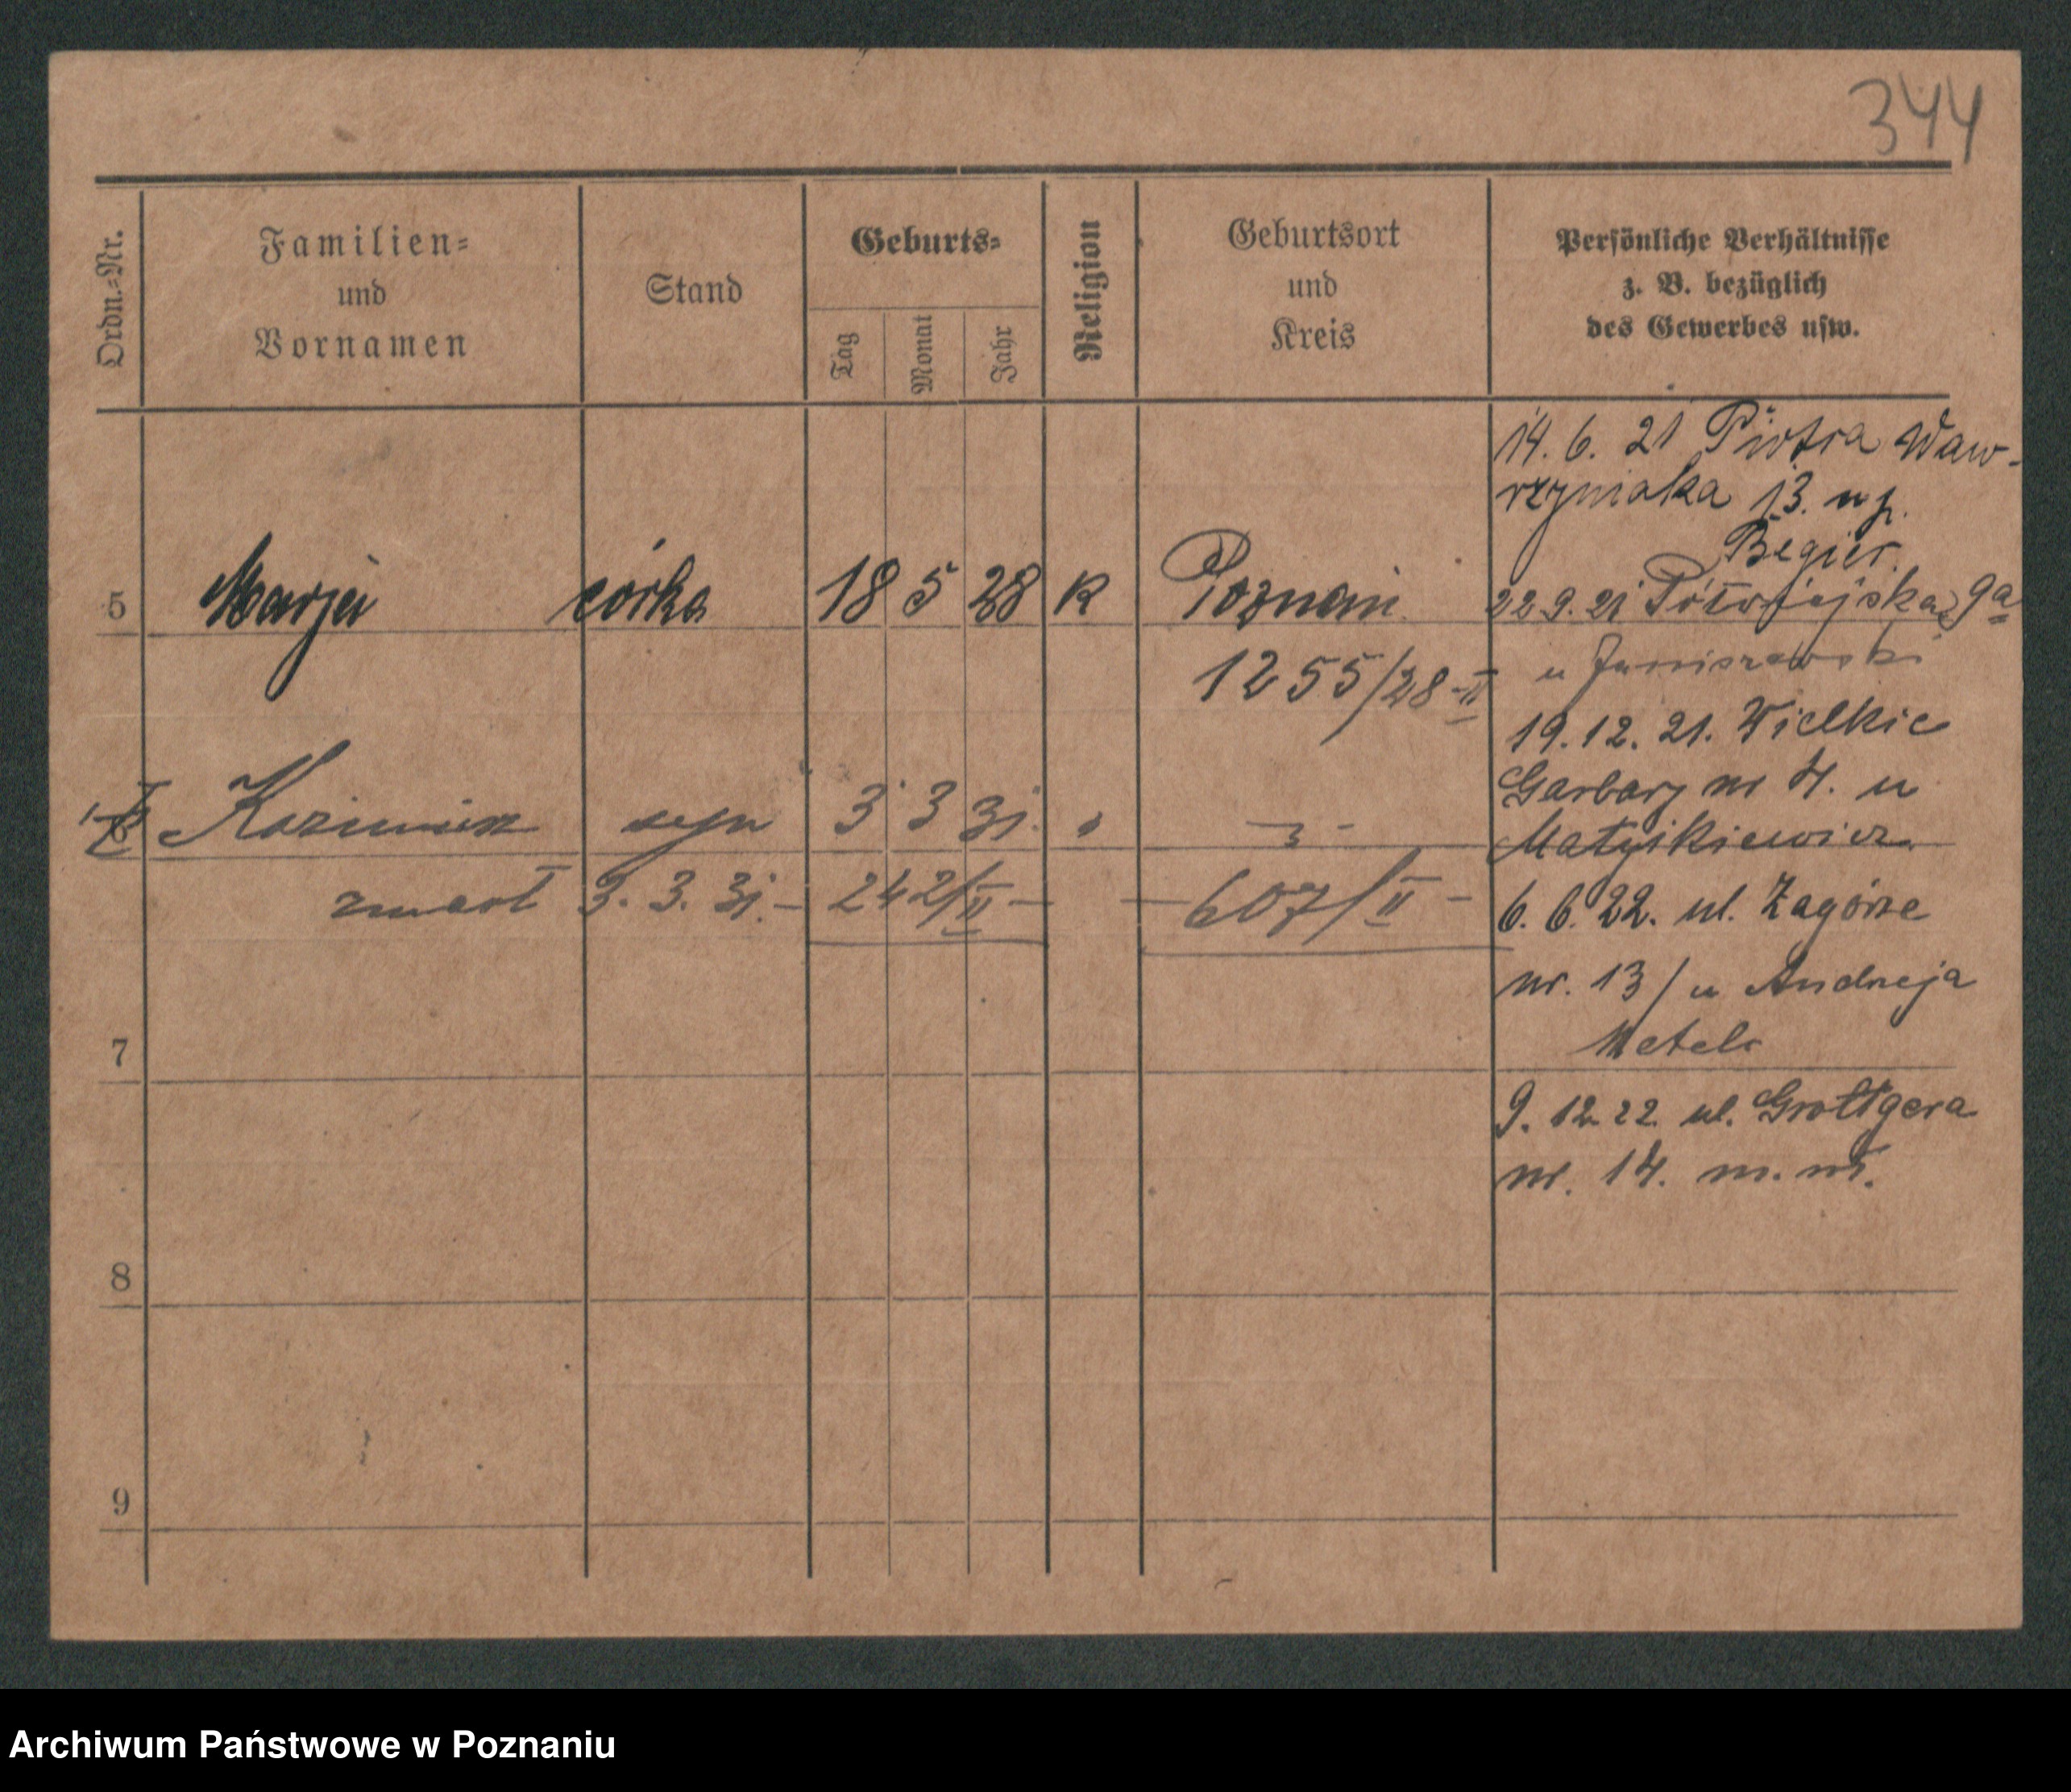 344
Ordn.-Nr.
Familien-
und
Vornamen
Stand
Geburts-
Tag
Monat
Jahr
Religion
Geburtsort
und
Kreis
Persönliche Verhältnisse
z. B. bezüglich
des Gewerbes usw.
5 Marja córka 18 5 28 K Poznań
1255/28-II
6 Kazimierz syn 3 3 31.
zmarł 3. 3. 31. - 242/II - - 607/II -
7
8
9
14. 6. 21 Piotra Waw-
rzyniaka 13. u p.
Begier.
22 9. 21 Półwiejska 9a
u Janiszewski
19. 12. 21. Wielkie
Garbary nr 4. u
Matyikiewicz.
6. 6. 22. ul. Zagórze
nr. 13/ u Andrzeja
Metels
9. 12 22. ul. Grottgera
nr. 14. m. wł.
Archiwum Państwowe w Poznaniu